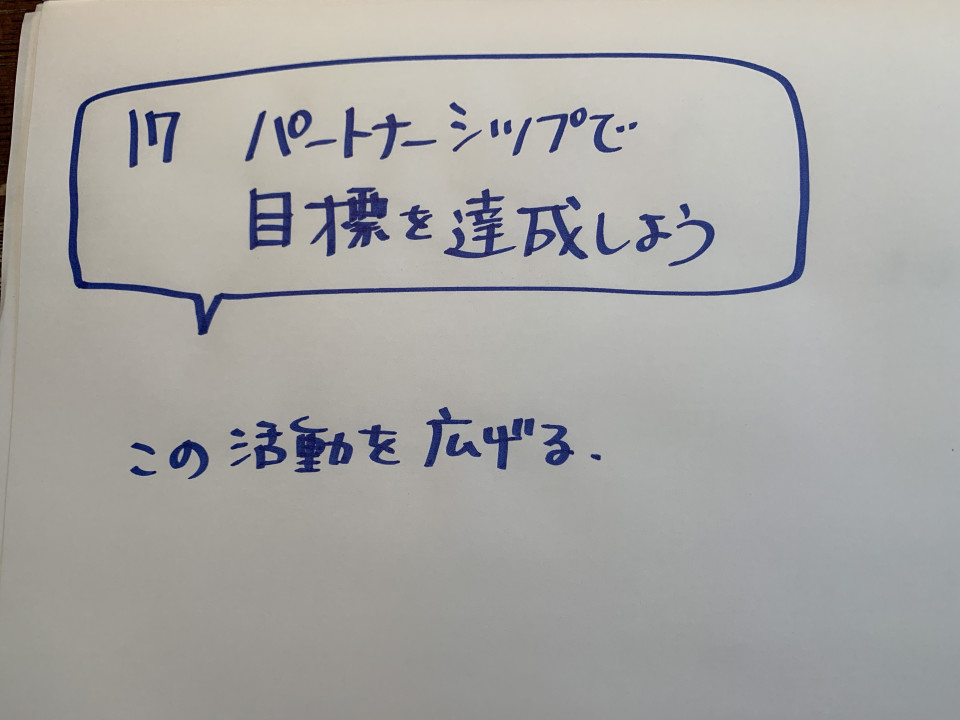 17 パートナーシップで
目標を達成しよう
この活動を広げる.